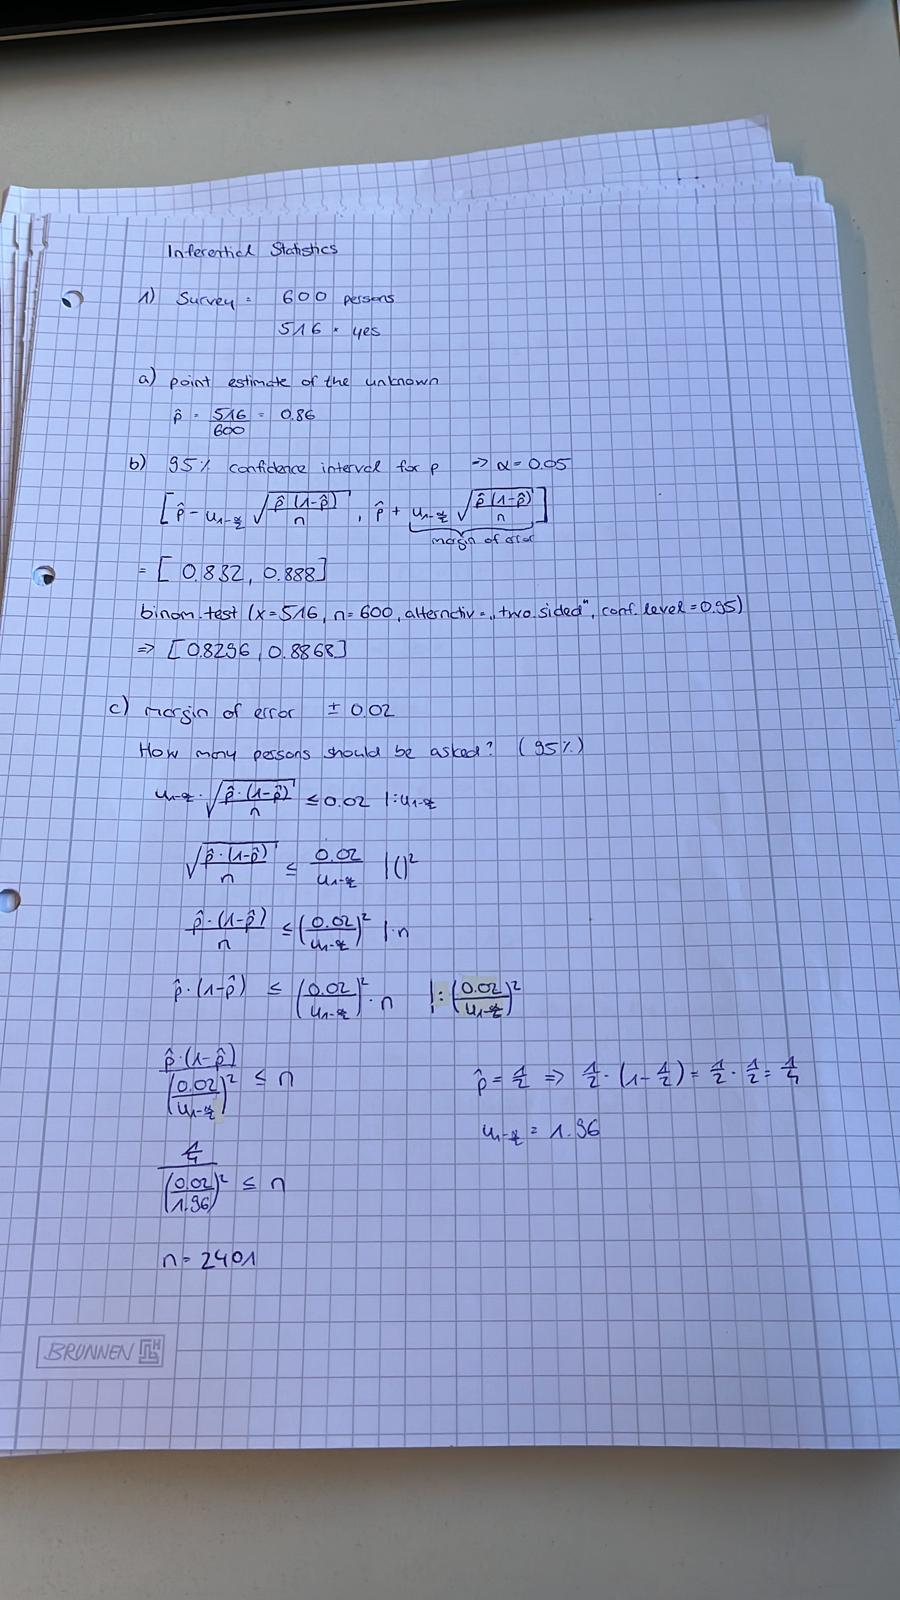 Inferential Statistics
1) Survey = 600 persons
516 = yes
a) point estimate of the unknown
p̂ = 516/600 = 0.86
b) 95% confidence interval for p => α = 0.05
[p̂ - u₁₋α/2 √(p̂(1-p̂)/n), p̂ + u₁₋α/2 √(p̂(1-p̂)/n)]
margin of error
= [0.832, 0.888]
binom.test (x=516, n=600, alternativ = „two.sided“, conf.level=0.95)
=> [0.8296, 0.8868]
c) margin of error ± 0.02
How many persons should be asked? (95%)
u₁₋α/2 · √(p̂·(1-p̂)/n) ≤ 0.02 |:u₁₋α/2
√(p̂·(1-p̂)/n) ≤ 0.02/u₁₋α/2 |()²
p̂·(1-p̂)/n ≤ (0.02/u₁₋α/2)² |·n
p̂·(1-p̂) ≤ (0.02/u₁₋α/2)² · n |:(0.02/u₁₋α/2)²
p̂·(1-p̂)/(0.02/u₁₋α/2)² ≤ n
p̂ = 1/2 => 1/2 · (1-1/2) = 1/2 · 1/2 = 1/4
u₁₋α/2 = 1.96
1/4/(0.02/1.96)² ≤ n
n = 2401
BRUNNEN